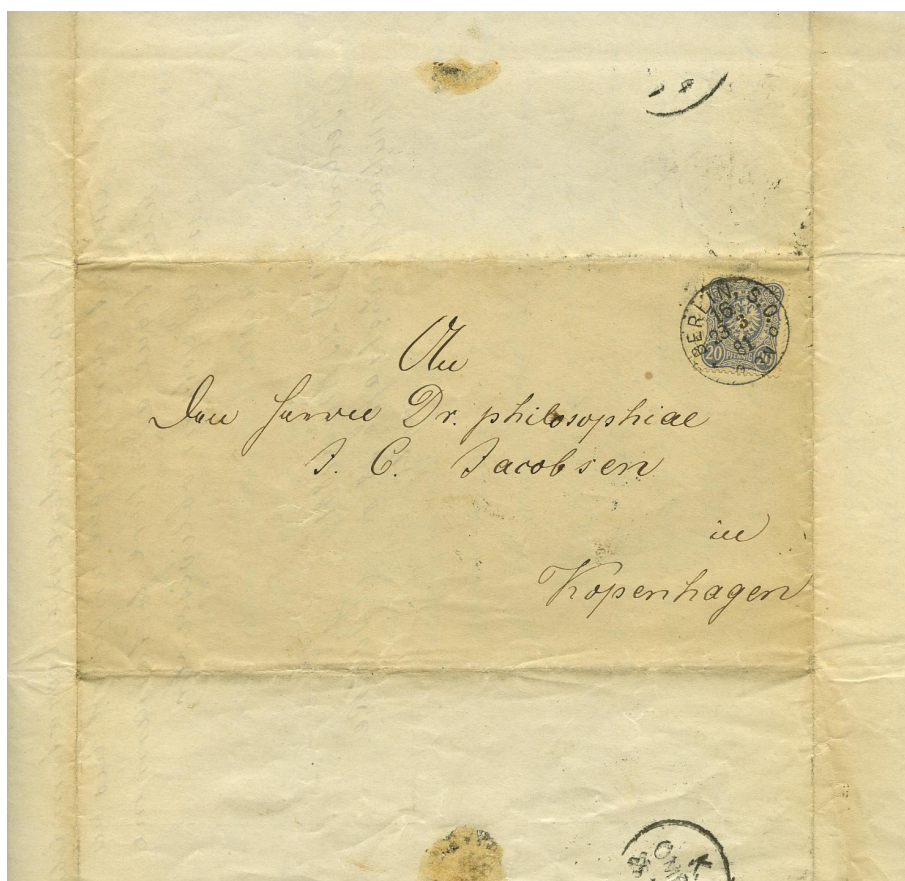 BERLIN, S.O.
16
23 3
81
20 PFENNIG 20
An
den Herrn Dr. philosophiae
J. C. Jacobsen
in
Kopenhagen
K
OMB